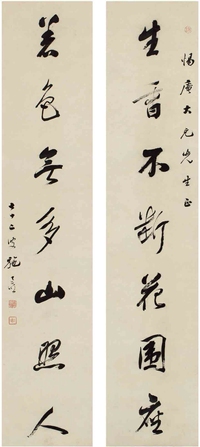 大兄先生正
生香不斷花圍座
着色無多山照人
七十二叟施